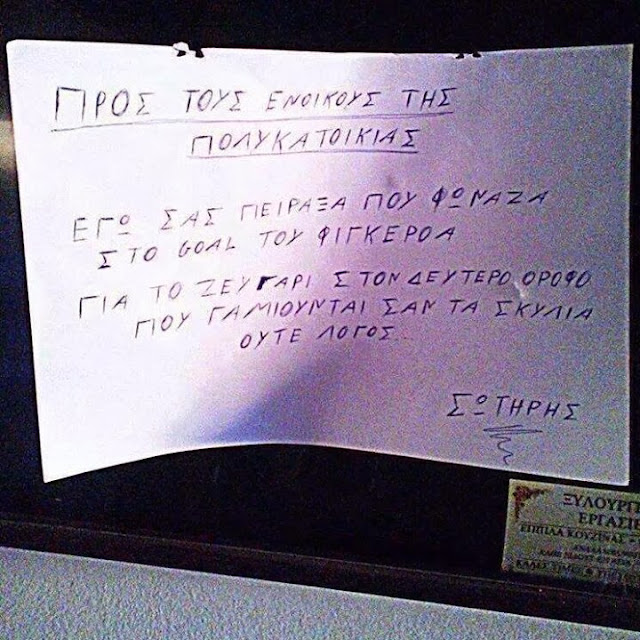 ΠΡΟΣ ΤΟΥΣ ΕΝΟΙΚΟΥΣ ΤΗΣ
ΠΟΛΥΚΑΤΟΙΚΙΑΣ
ΕΓΩ ΣΑΣ ΠΕΙΡΑΞΑ ΠΟΥ ΦΩΝΑΖΑ
ΣΤΟ GOAL ΤΟΥ ΦΙΓΚΕΡΟΑ
ΓΙΑ ΤΟ ΖΕΥΓΑΡΙ ΣΤΟΝ ΔΕΥΤΕΡΟ ΟΡΟΦΟ
ΠΟΥ ΓΑΜΙΟΥΝΤΑΙ ΣΑΝ ΤΑ ΣΚΥΛΙΑ
ΟΥΤΕ ΛΟΓΟΣ...
ΣΩΤΗΡΗΣ
ΕΠΙΠΛΑ ΚΟΥΖΙΝΑΣ